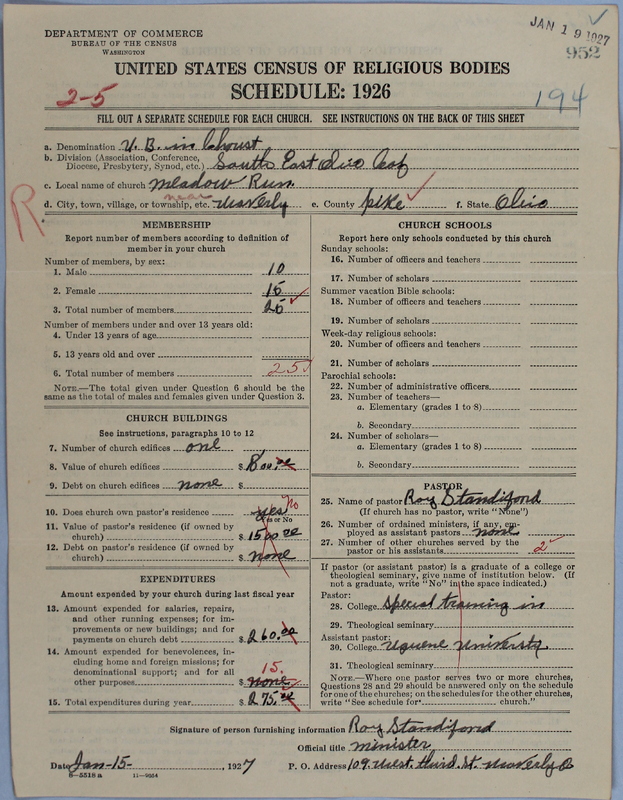 DEPARTMENT OF COMMERCE
BUREAU OF THE CENSUS
WASHINGTON
JAN 19 1927
952
UNITED STATES CENSUS OF RELIGIOUS BODIES
SCHEDULE: 1926
2-5
194
FILL OUT A SEPARATE SCHEDULE FOR EACH CHURCH. SEE INSTRUCTIONS ON THE BACK OF THIS SHEET
a. Denomination U. B. in Christ
b. Division (Association, Conference, Diocese, Presbytery, Synod, etc.) South East Ohio Conf
c. Local name of church Meadow Run
R
d. City, town, village, or township, etc. near Waverly e. County Pike f. State Ohio
MEMBERSHIP
Report number of members according to definition of
member in your church
Number of members, by sex:
1. Male 10
2. Female 15
3. Total number of members 25
Number of members under and over 13 years old:
4. Under 13 years of age
5. 13 years old and over
6. Total number of members 25
NOTE.—The total given under Question 6 should be
same as the total of males and females given under Question 3.
CHURCH BUILDINGS
See instructions, paragraphs 10 to 12
7. Number of church edifices one
8. Value of church edifices $ 800.00
9. Debt on church edifices none $
10. Does church own pastor's residence yes No
Yes or No
11. Value of pastor's residence (if owned by
church) $ 1500 00
12. Debt on pastor's residence (if owned by
church) $ none
EXPENDITURES
Amount expended by your church during last fiscal year
13. Amount expended for salaries, repairs,
and other running expenses; for im-
provements or new buildings; and for
payments on church debt $ 260.00
14. Amount expended for benevolences, in-
cluding home and foreign missions; for
denominational support; and for all 15.
other purposes $ none
15. Total expenditures during year $ 275.00
CHURCH SCHOOLS
Report here only schools conducted by this church
Sunday schools:
16. Number of officers and teachers
17. Number of scholars
Summer vacation Bible schools:
18. Number of officers and teachers
19. Number of scholars
Week-day religious schools:
20. Number of officers and teachers
21. Number of scholars
Parochial schools:
22. Number of administrative officers
23. Number of teachers—
a. Elementary (grades 1 to 8)
b. Secondary
24. Number of scholars—
a. Elementary (grades 1 to 8)
b. Secondary
PASTOR
25. Name of pastor Roy Standiford
(If church has no pastor, write "None")
26. Number of ordained ministers, if any, em-
ployed as assistant pastors none
27. Number of other churches served by the
pastor or his assistants 2
If pastor (or assistant pastor) is a graduate of a college or
theological seminary, give name of institution below. (If
not a graduate, write "No" in the space indicated.)
Pastor:
28. College Special training in
29. Theological seminary
Assistant pastor:
30. College Uguene University
31. Theological seminary
NOTE.—Where one pastor serves two or more churches,
Questions 28 and 29 should be answered only on the schedule
for one of the churches; on the schedules for the other churches,
write "See schedule for church."
Signature of person furnishing information Roy Standiford
Official title Minister
Date Jan-15-, 1927 P. O. Address 109. West. third. St. Waverly O
8—5518 a 11—9864